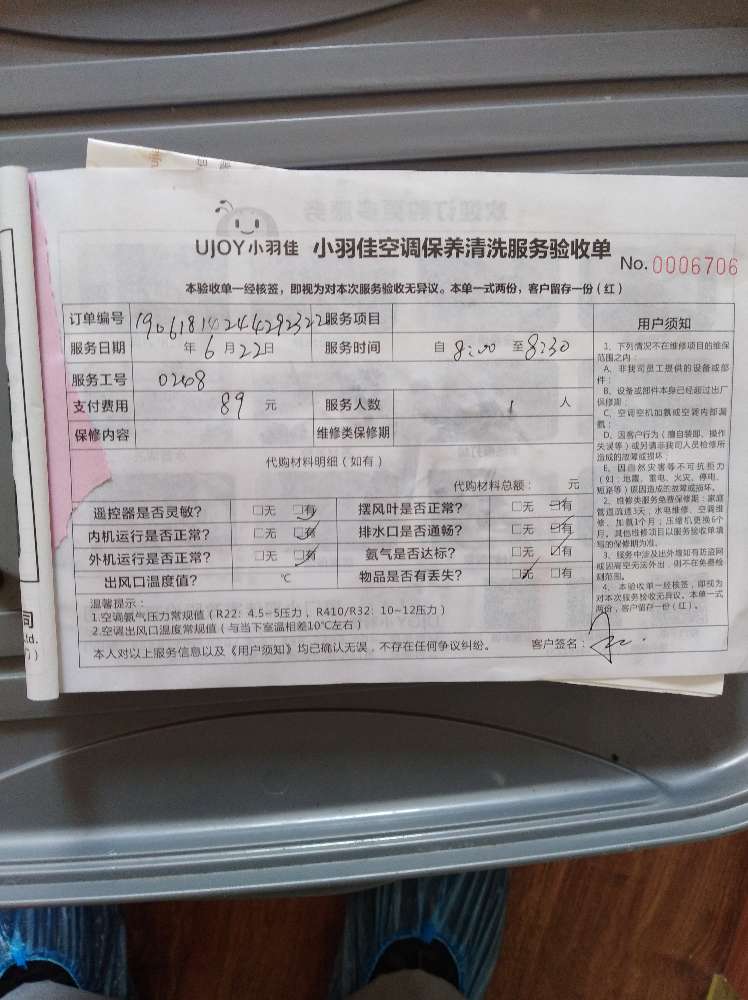 UJOY小羽佳 小羽佳空调保养清洗服务验收单
No. 0006706
本验收单一经核签，即视为对本次服务验收无异议。本单一式两份，客户留存一份（红）
订单编号 服务项目
服务日期 年6月22日 服务时间 自8:00至8:30
服务工号 0208
支付费用 89 元 服务人数 1 人
保修内容 维修类保修期
代购材料明细（如有）
代购材料总额： 元
遥控器是否灵敏? □无 □有 摆风叶是否正常? □无 □有
内机运行是否正常? □无 □有 排水口是否通畅? □无 □有
外机运行是否正常? □无 □有 氨气是否达标? □无 □有
出风口温度值? ℃ 物品是否有丢失? □无 □有
温馨提示：
1.空调氨气压力常规值（R22：4.5~5压力、R410/R32：10~12压力）
2.空调出风口温度常规值（与当下室温相差10℃左右）
本人对以上服务信息以及《用户须知》均已确认无误，不存在任何争议纠纷。 客户签名：
用户须知
1、下列情况不在维修项目的维保
范围之内：
A、非我司员工提供的设备或部
件；
B、设备或部件本身已经超过出厂
保修期；
C、空调空机加氨或空调内部漏
氨；
D、因客户行为（擅自装卸、操作
失误等）或另请非我司人员检修所
造成的故障或损坏；
E、因自然灾害等不可抗拒力
（如：地震、雷电、火灾、停电、
短路等）原因造成的故障或损坏。
2、维修类服务免费保修期：家庭
管道疏通3天；水电维修、空调维
修、加氨1个月；压缩机更换6个
月。其他维修项目以服务验收单填
写的保修期为准。
3、服务中涉及出外墙如有防盗网
或因高空无法外出，则不在免费检
测范围。
4、本验收单一经核签，即视为
对本次服务验收无异议。本单一式
两份，客户留存一份（红）。
司
td.